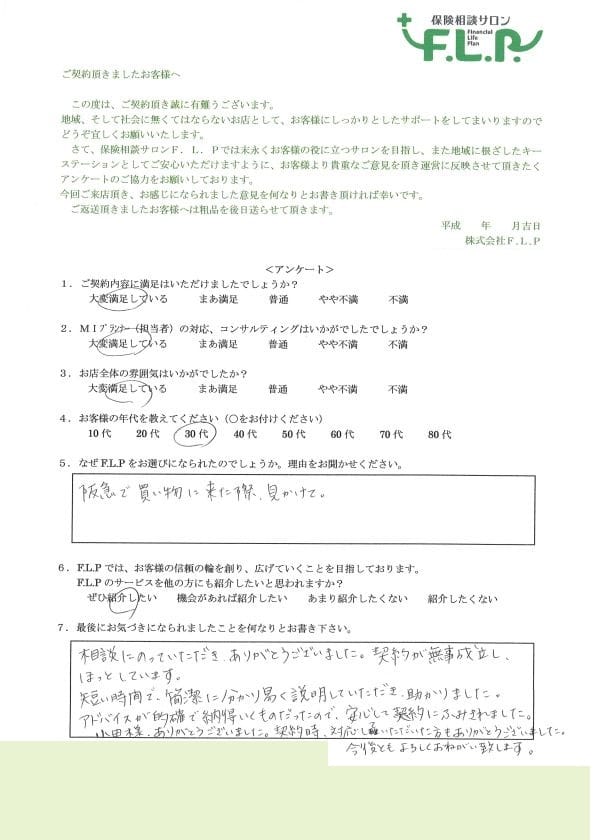 保険相談サロン
F.L.P.
Financial
Life
Plan
ご契約頂きましたお客様へ
この度は、ご契約頂き誠に有難うございます。
地域、そして社会に無くてはならないお店として、お客様にしっかりとしたサポートをしてまいりますので
どうぞ宜しくお願いいたします。
さて、保険相談サロンF．L．Pでは末永くお客様の役に立つサロンを目指し、また地域に根ざしたキー
ステーションとしてご安心いただけますように、お客様より貴重なご意見を頂き運営に反映させて頂きたく
アンケートのご協力をお願いしております。
今回ご来店頂き、お感じになられました意見を何なりとお書き頂ければ幸いです。
ご返送頂きましたお客様へは粗品を後日送らせて頂きます。
平成　年　月吉日
株式会社F.L.P
＜アンケート＞
１．ご契約内容に満足はいただけましたでしょうか？
大変満足している　まあ満足　普通　やや不満　不満
２．ＭＩプランナー（担当者）の対応、コンサルティングはいかがでしたでしょうか？
大変満足している　まあ満足　普通　やや不満　不満
３．お店全体の雰囲気はいかがでしたか？
大変満足している　まあ満足　普通　やや不満　不満
４．お客様の年代を教えてください（〇をお付けください）
10代　20代　30代　40代　50代　60代　70代　80代
５．なぜF.L.Pをお選びになられたのでしょうか。理由をお聞かせください。
阪急で買い物に来た際、見かけて。
６．F.L.Pでは、お客様の信頼の輪を創り、広げていくことを目指しております。
F.L.Pのサービスを他の方にも紹介したいと思われますか？
ぜひ紹介したい　機会があれば紹介したい　あまり紹介したくない　紹介したくない
７．最後にお気づきになられましたことを何なりとお書き下さい。
相談にのっていただき、ありがとうございました。契約が無事成立し、
ほっとしています。
短い時間で、簡潔に分かり易く説明していただき、助かりました。
アドバイスが的確で納得いくものだったので、安心して契約にふみきれました。
様、ありがとうございました。契約時、対応していただいた方もありがとうございました。
今後ともよろしくおねがい致します。